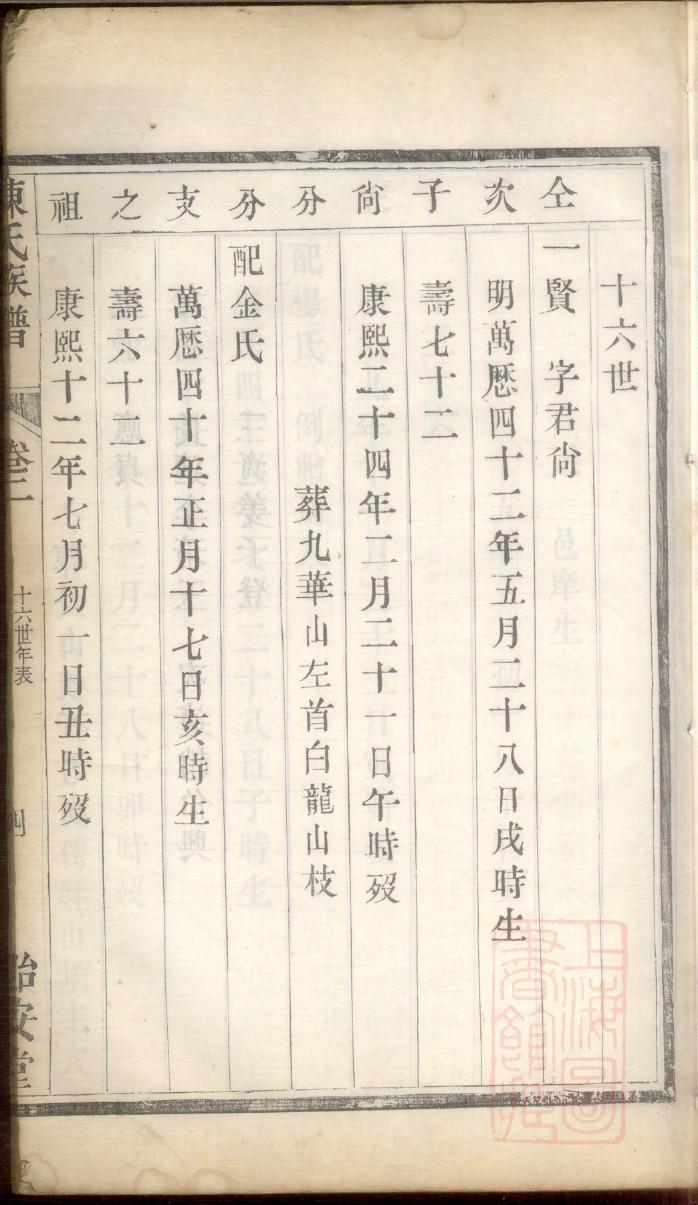 十六世
仝次子尙分分支之祖
一賢 字君尙
明萬歷四十二年五月二十八日戌時生
壽七十二
康熙二十四年二月二十一日午時歿
葬九華山左首白龍山枝
配金氏
萬歷四十年正月十七日亥時生
壽六十二
康熙十二年七月初一日丑時歿
陳氏族譜 卷二 十六世年表 怡安堂
上海圖書館藏